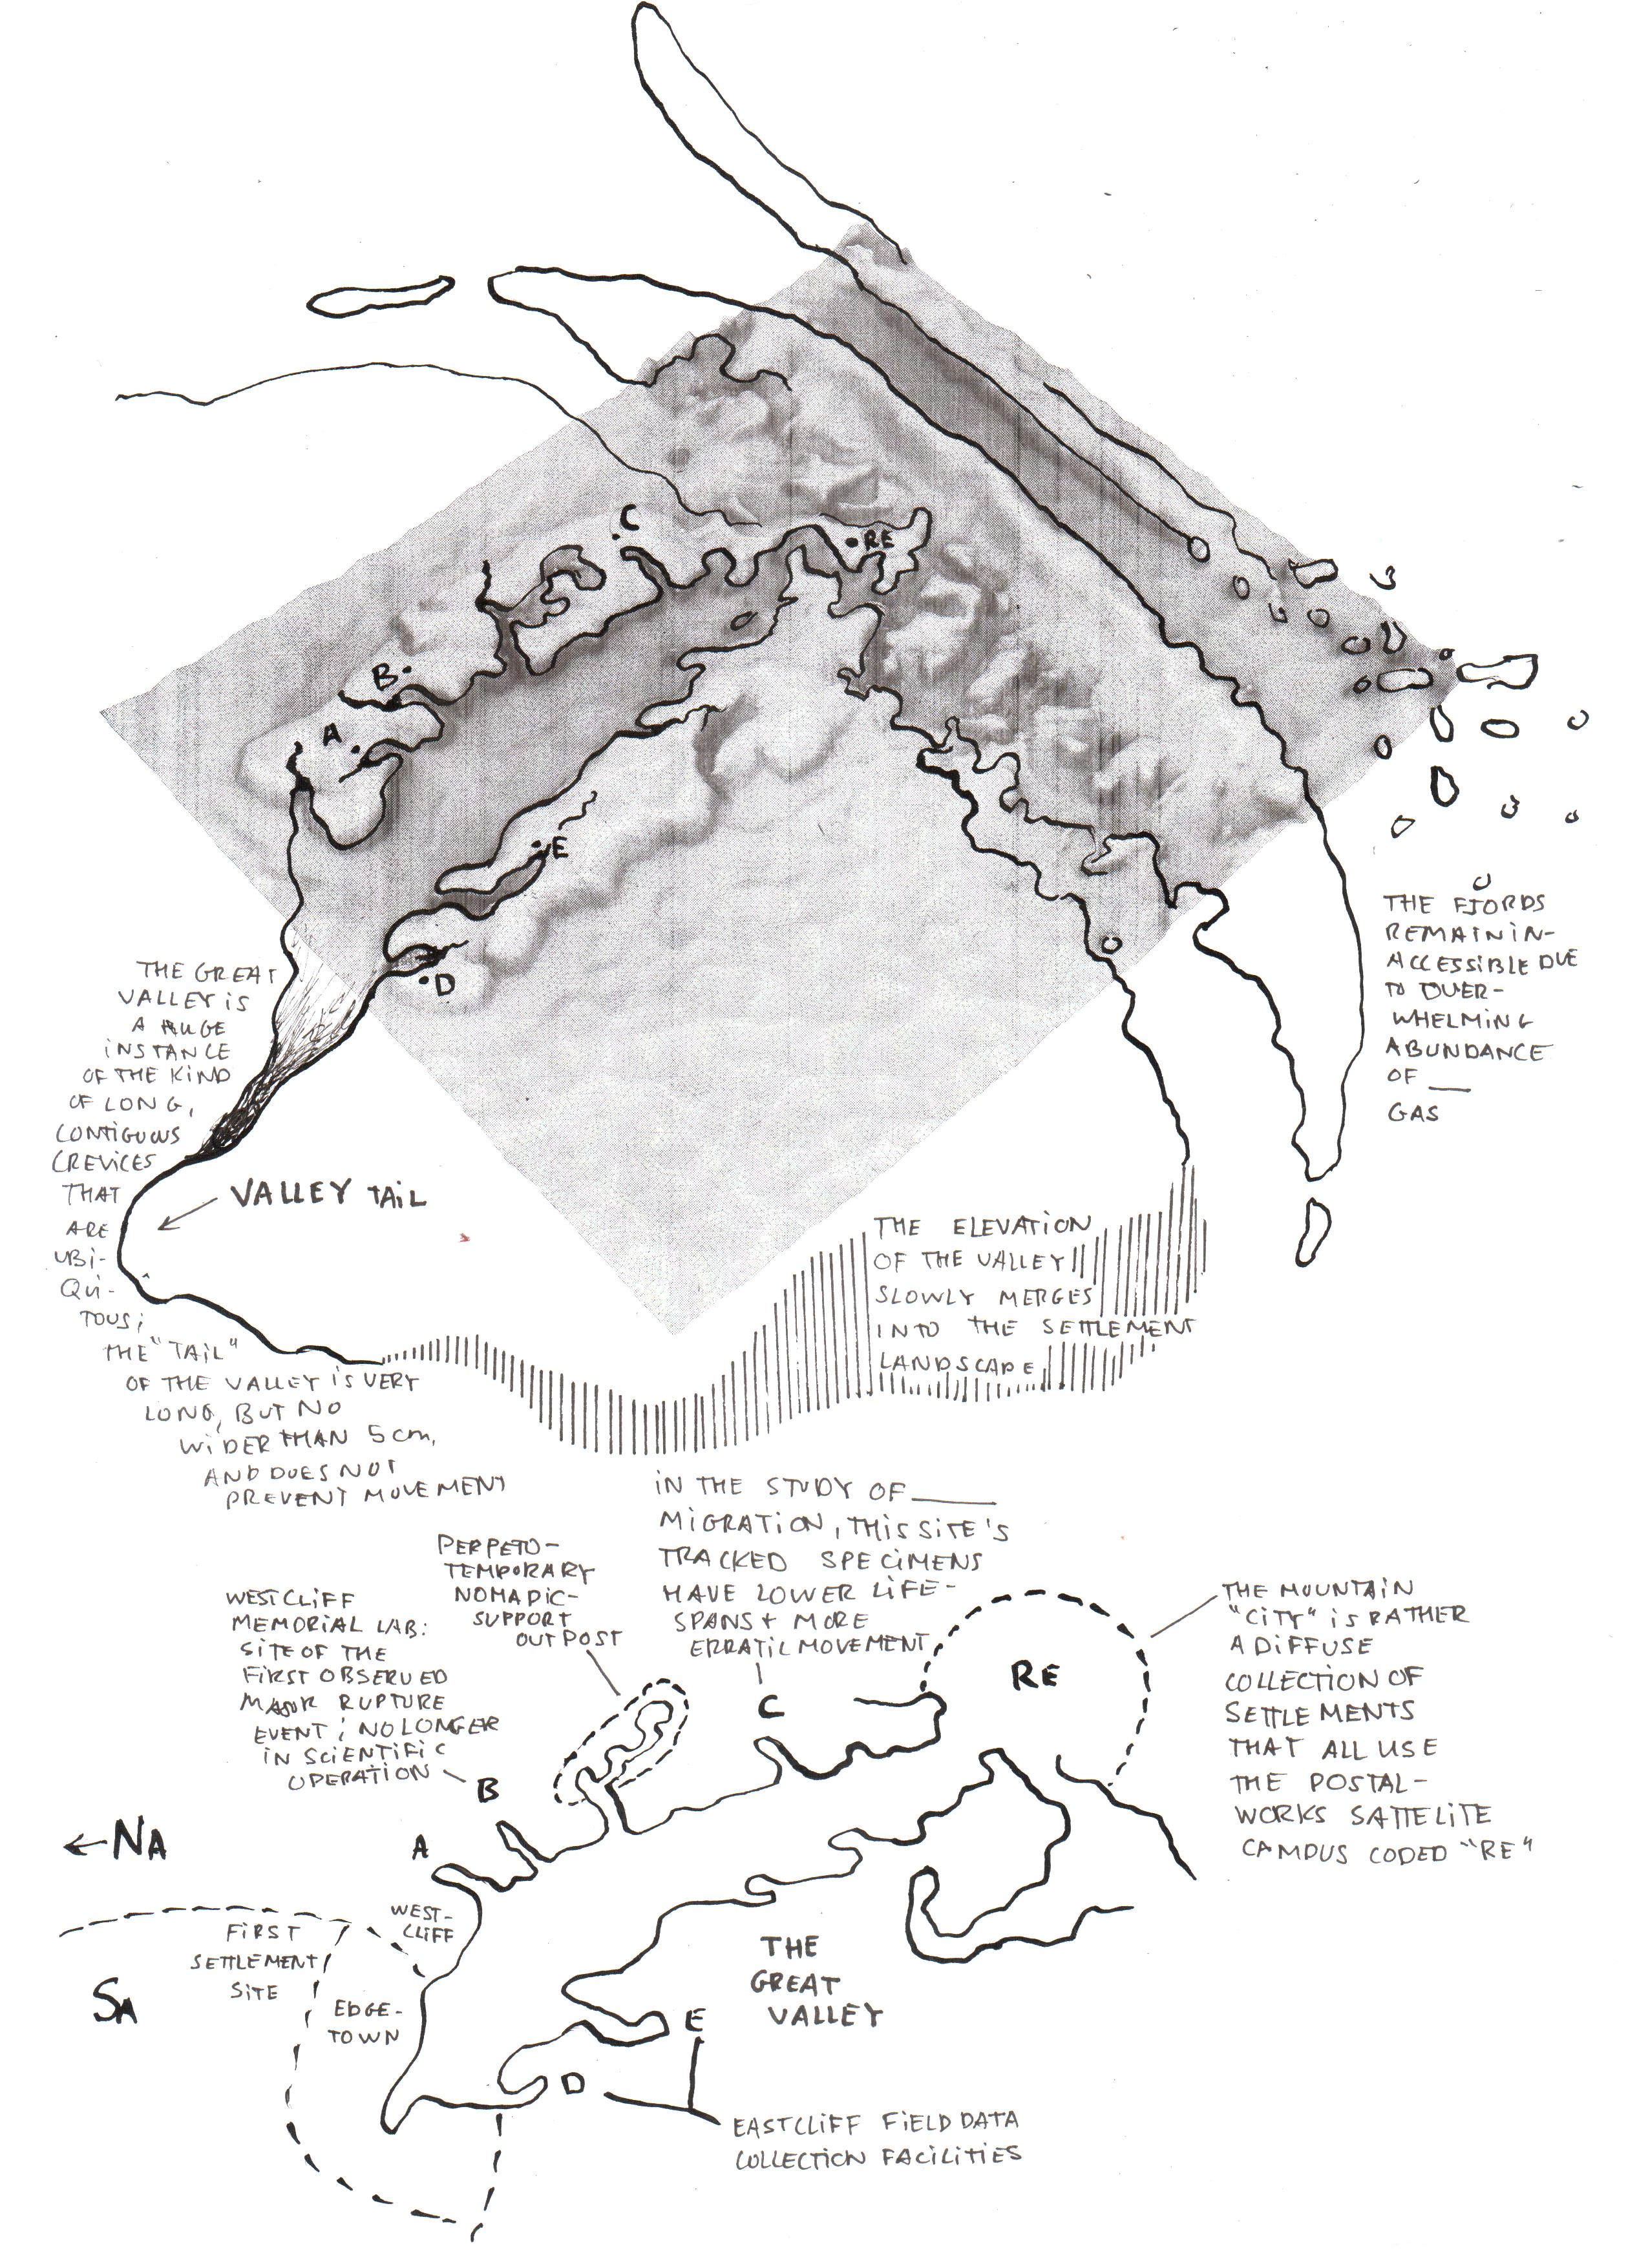 C
RE
B
A
E
D
THE FJORDS
REMAIN IN-
ACCESSIBLE DUE
TO OVER-
WHELMING
ABUNDANCE
OF ___
GAS
THE GREAT
VALLEY iS
A HUGE
iNSTANCE
OF THE KiND
OF LONG,
CONTIGUOUS
CREVICES
THAT
ARE
UBi-
QUi-
TOUS;
THE "TAiL"
OF THE VALLEY iS VERY
LONG, BUT NO
WiDER THAN 5cm,
AND DOES NOT
PREVENT MOVEMENT
VALLEY TAiL
THE ELEVATiON
OF THE VALLEY
SLOWLY MERGES
INTO THE SETTLEMENT
LANDSCAPE
iN THE STUDY OF ____
MiGRATiON, THiS SiTE'S
TRACKED SPECiMENS
HAVE LOWER LiFE-
SPANS + MORE
ERRATiC MOVEMENT
PERPETO-
TEMPORARY
NOMADiC-
SUPPORT
OUTPOST
WESTCLiFF
MEMORiAL LAB:
SiTE OF THE
FiRST OBSERVED
MAJOR RUPTURE
EVENT; NO LONGER
iN SCiENTiFiC
OPERATiON
THE MOUNTAiN
"CiTY" iS RATHER
A DiFFUSE
COLLECTiON OF
SETTLEMENTS
THAT ALL USE
THE POSTAL-
WORKS SATTELiTE
CAMPUS CODED "RE"
RE
C
B
A
←NA
WEST-
CLiFF
FiRST
SETTLEMENT
SiTE
SA
EDGE-
TOWN
THE
GREAT
VALLEY
E
D
EASTCLiFF FiELD DATA
COLLECTiON FACiLiTiES